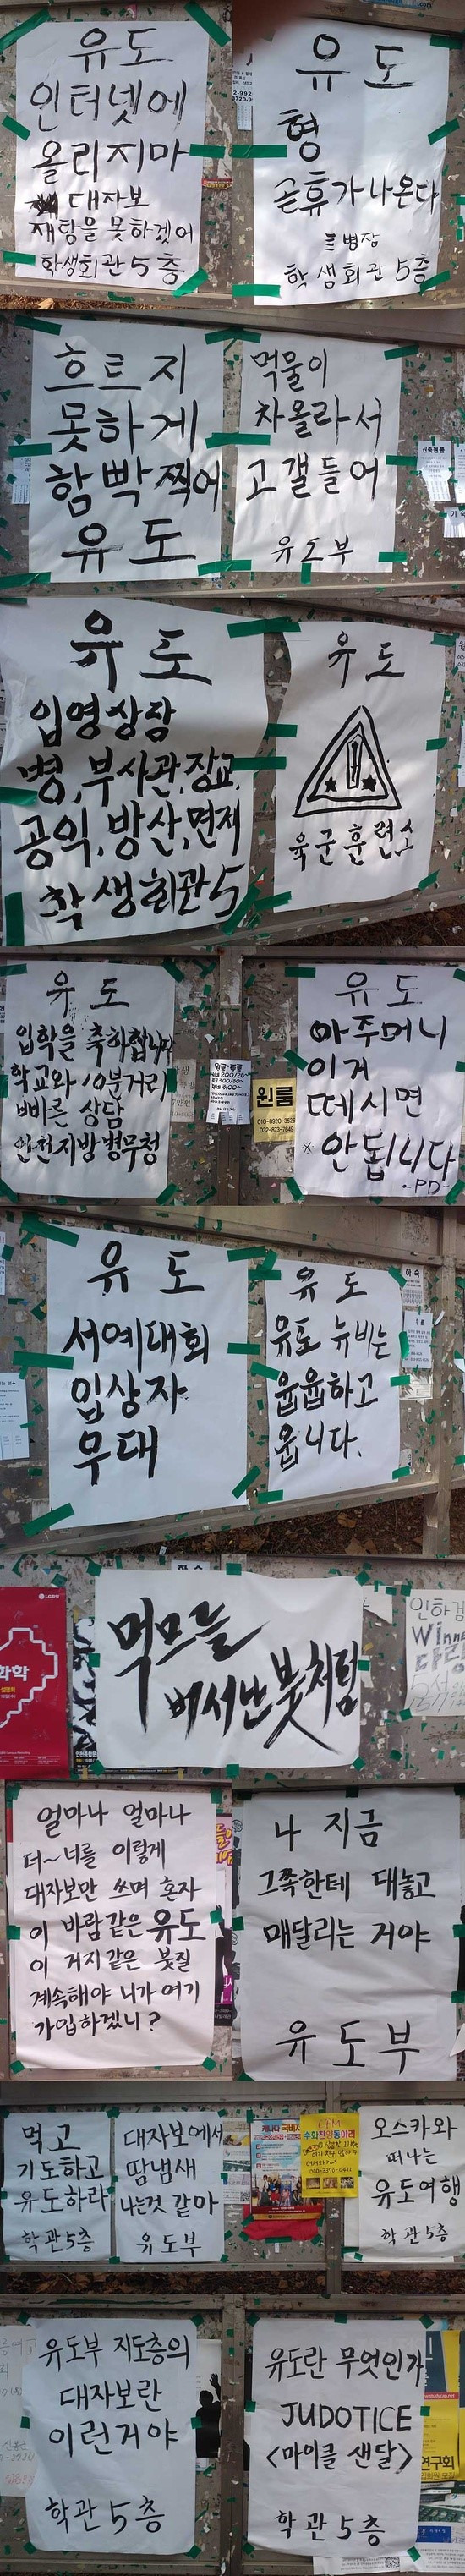 유도
인터넷에
올리지마
대자보
재탕을 못하겠어
학생회관 5층
유도
형
곧 휴가 나온다
병장
학생회관 5층
흐트지
못하게
함빡 찍어
유도
먹물이
차올라서
고갤 들어
유도부
유도
입영상담
병, 부사관, 장교,
공익, 방산, 면제
학생회관 5
유도
육군훈련소
유도
입학을 축하합니다
학교와 10분거리
빠른 상담
인천지방병무청
원룸
010-8920-3526
032-873-7649
유도
아주머니
이거
떼시면
※ 안됩니다
-PD-
유도
서예대회
입상자
우대
유도
유도 뉴비는
웁웁하고
웁니다.
먹므를
벼서난 붓처럼
화학
인하검
Winne
다랑
얼마나 얼마나
더~ 너를 이렇게
대자보만 쓰며 혼자
이 바람같은 유도
이 거지같은 붓질
계속해야 니가 여기
가입하겠니?
나 지금
그쪽한테 대놓고
매달리는 거야
유도부
먹고
기도하고
유도하라
학관 5층
대자보에서
땀냄새
나는것 같아
유도부
캐나다 국비
수화찬양동아리
오스카와
떠나는
유도여행
학관 5층
유도부 지도층의
대자보란
이런거야
학관 5층
유도란 무엇인가
JUDOTICE
<마이클 샌달>
학관 5층
연구회